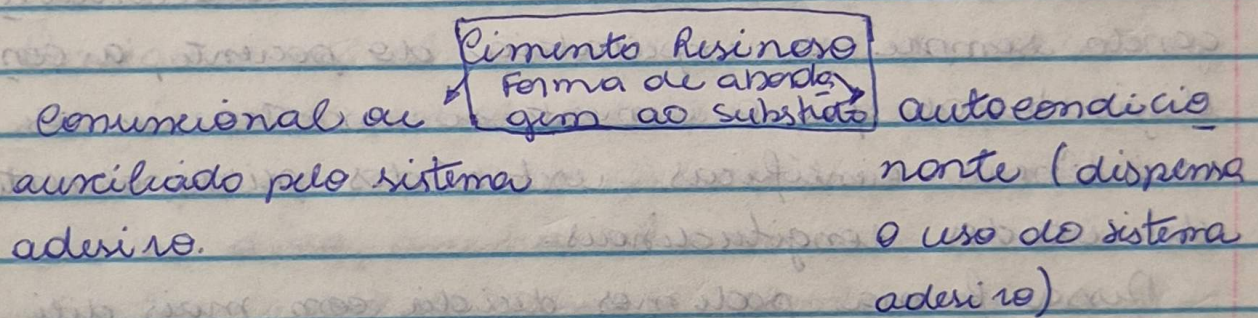 Cimento Resinoso
Forma de aborda
gem ao substrato
Convencional ou
auxiliado pelo sistema
adesivo.
autocondicio
nante (dispensa
o uso do sistema
adesivo)